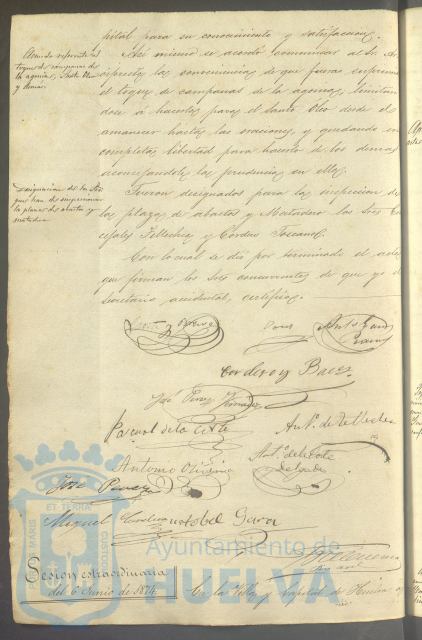 pital para su conocimiento y satisfaccion.
Acuerdo referente al
toque de campanas de
la agonia, Santo Oleo
y demas.
Asi mismo se acordó comunicar al Sr. Ar
cipreste la conveniencia de que fuera suprimido
el toque de campanas de la agonia, limitan
dose á hacerlas para el Santo Oleo desde el
amanecer hasta las oraciones, y quedando en
completa libertad para hacerlo de los demas
aconsejandole la prudencia en ellos.
Designacion de los Sres
que han de inspeccionar
la plaza de abastos y
matadero
Fueron designados para la inspeccion de
las plazas de abastos y Matadero los Sres Con
cejales Tellechea y Cordero
Con lo cual se dió por terminado el acto
que firman los Sres concurrentes de que yo el
Secretario accidental, certifico.
Cordero y Baez
José Perez
Pascual de la Corte
Antº. de Tellechea
Antonio Oliveira
Antº. de la Corte
José
Miguel
Garcia
Sesion extraordinaria
del 6 Junio de 1874
En la Villa y capital de Huelva
PORTUS MARIS ET TERRAE CUSTODIA
Ayuntamiento de
HUELVA